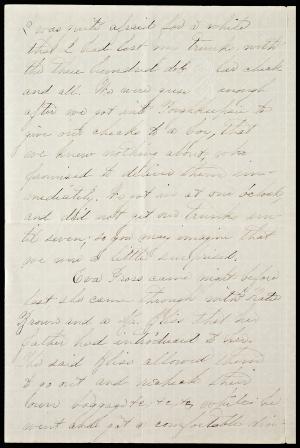 I was quite afraid for a while
that I had lost my trunk with
the three hundred dol lar check
and all. We were green enough
after we got into Poughkeepsie to
give our checks to a boy, that
we knew nothing about, who
promised to deliver them im-
mediately. We got in at one o'clock
and did not get our trunk un-
til seven; so you may imagine that
we were a little surprised.
Eva Cross came night before
last she came through with Kate
Brown and a Mr. Bliss that her
father had introduced to her.
She said Bliss allowed them
to go out and recheck their
own baggage &c &c, while he
went and got a comfortable din-